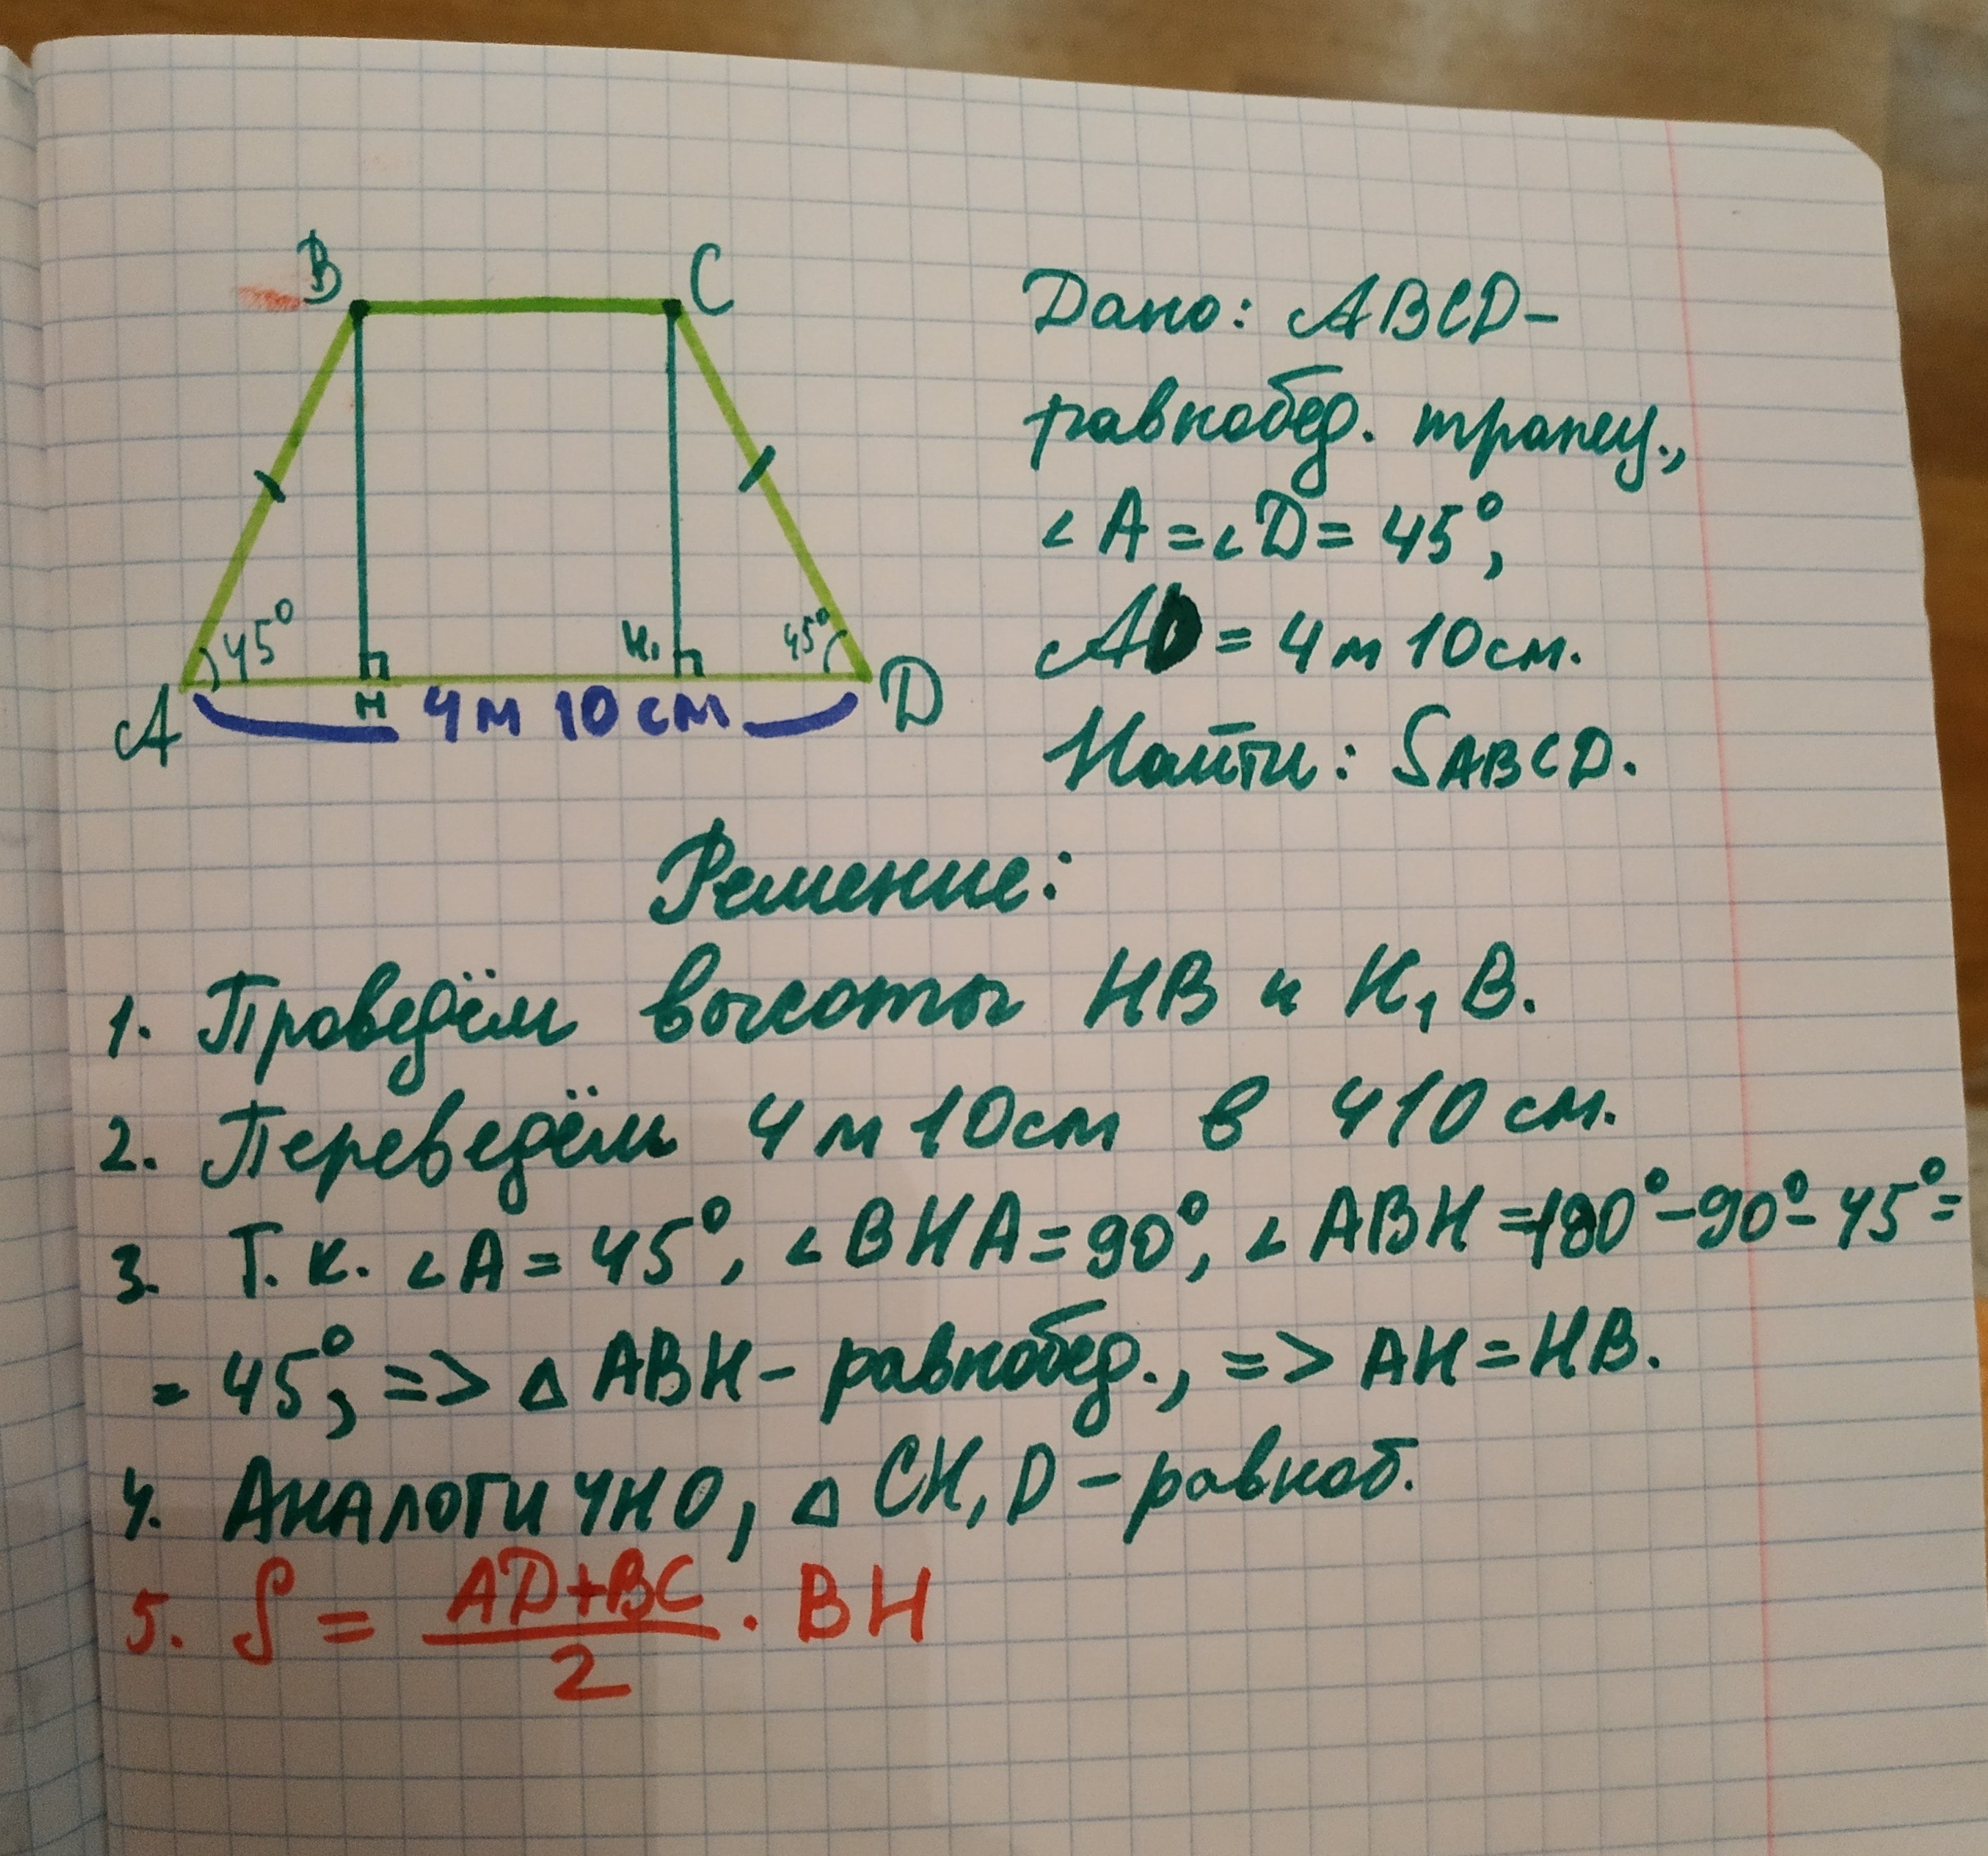 B
C
45°
H₁
45°
A
H
4м 10см
D
Дано: ABCD-
равнобед. трапец.,
∠A=∠D=45°,
AD = 4 м 10 см.
Найти: SABCD.
Решение:
1. Проведём высоты HB и H₁B.
2. Переведём 4 м 10 см в 410 см.
3. Т. к. ∠A = 45°, ∠BHA = 90°, ∠ABH = 180° - 90° - 45° =
= 45°, => △ ABH - равнобед., => AH = HB.
4. Аналогично, △ CH₁D - равноб.
5. S = (AD+BC)/2 · BH